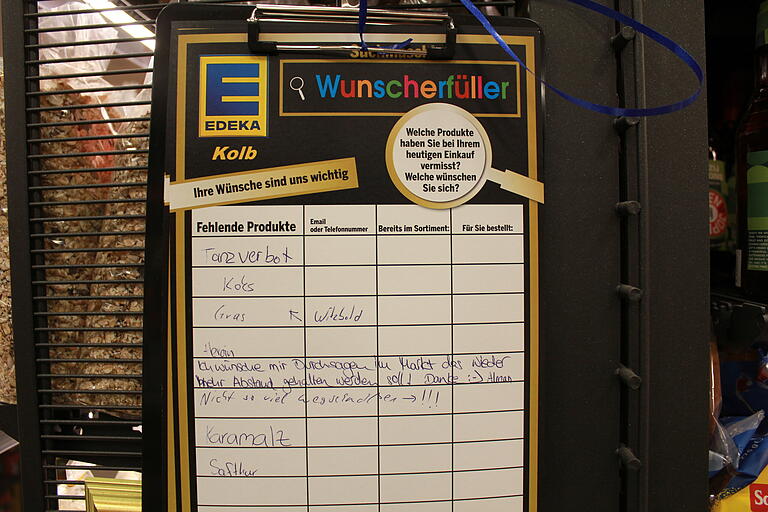 EDEKA
Kolb
Wunscherfüller
Welche Produkte
haben Sie bei Ihrem
heutigen Einkauf
vermisst?
Welche wünschen
Sie sich?
Ihre Wünsche sind uns wichtig
Fehlende Produkte
Email
oder Telefonnummer
Bereits im Sortiment:
Für Sie bestellt:
Tanzverbot
Koks
Gras ↖ Witzbold
Heroin
Ich wünsche mir Durchsagen im Markt das wieder
mehr Abstand gehalten werden soll! Danke :-)
Nicht so viel →!!!
Karamalz
Saftkur